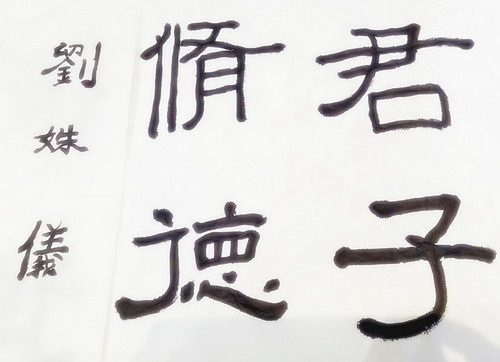 君子
脩德
劉姝儀